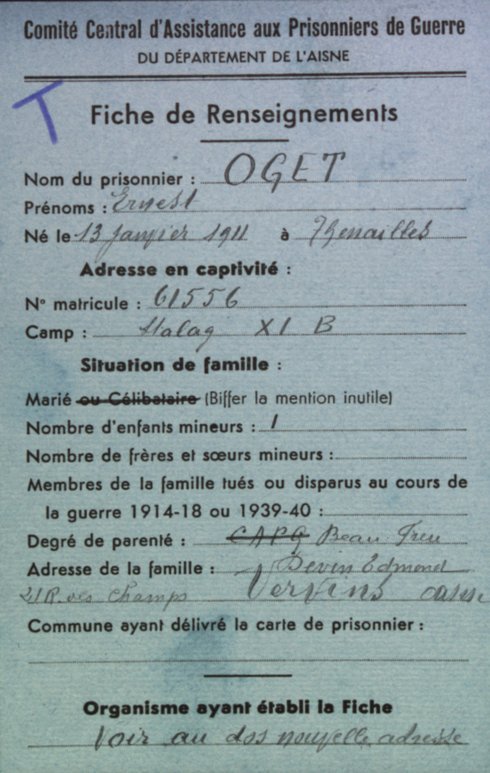 Comité Central d'Assistance aux Prisonniers de Guerre
DU DÉPARTEMENT DE L'AISNE
T
Fiche de Renseignements
Nom du prisonnier : OGET
Prénoms : Ernest
Né le 13 janvier 1911 à Thenailles
Adresse en captivité :
N° matricule : 61556
Camp : Stalag XI B
Situation de famille :
Marié ou Célibataire (Biffer la mention inutile)
Nombre d'enfants mineurs : 1
Nombre de frères et sœurs mineurs :
Membres de la famille tués ou disparus au cours de
la guerre 1914-18 ou 1939-40 :
Degré de parenté : Beau Frere
Adresse de la famille : Devin Edmond
21 R. des Champs Vervins aisne
Commune ayant délivré la carte de prisonnier :
Organisme ayant établi la Fiche
Voir au dos nouvelle adresse